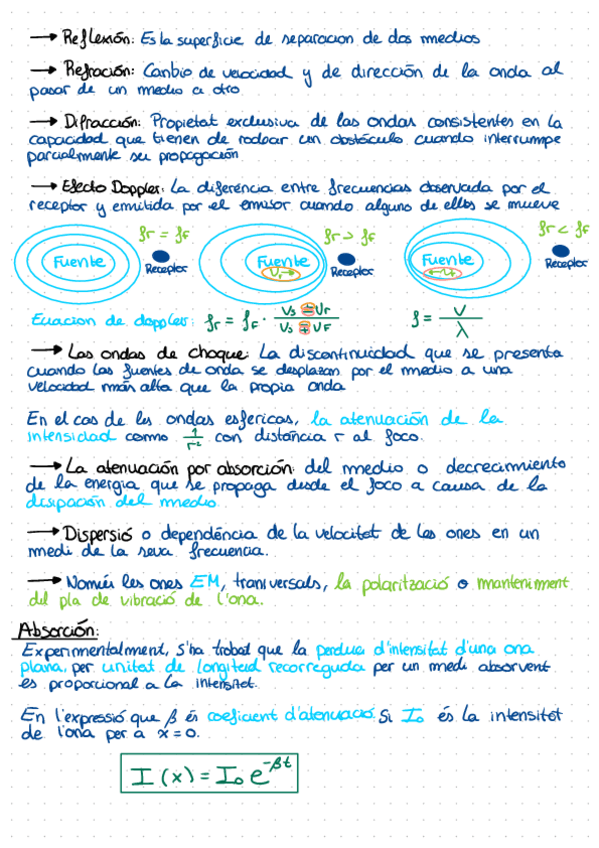 → Reflexión: Es la superficie de separacion de dos medios
→ Refración: Canbio de velocidad y de dirección de la onda al
pasar de un medio a otro
→ Difracción: Propietat exclusiva de las ondas consistentes en la
capacidad que tienen de rodear un obstáculo cuando interrumpe
parcialmente su propagación
→ Efecto Doppler: La diferéncia entre frecuencias observada por el
receptor y emitida por el emisor cuando alguno de ellos se mueve
fr = fF
fr > fF
fr < fF
Fuente Receptor Fuente Receptor Fuente Receptor
Ecuacion de doppler: fr = fF · (Vs ± Vr) / (Vs ∓ VF) f = V / λ
→ Las ondas de choque: La discontinuidad que se presenta
cuando las fuentes de onda se desplazan por el medio a una
velocidad más alta que la propia onda
En el cas de les ondas esfericas, la atenuación de la
intensidad commo 1/r² con distáncia r al foco.
→ La atenuación por absorción: del medio o decrecimiento
de la energia que se propaga desde el foco a causa de la
disipación del medio
→ Dispersió o dependéncia de la velocitat de les ones en un
medi de la seva frecuencia.
→ Només les ones EM, tranversals, la polarització o manteniment
del pla de vibració de l'ona.
Absorción:
Experimentalment, s'ha trobat que la perdua d'intensitat d'una ona
plana, per unitat de longitud recorreguda per un medi absorvent
és proporcional a la intensitat.
En l'expressió que β és coeficient d'atenuació. Si I₀ és la intensitat
de l'ona per a x = 0.
I (x) = I₀ e^-βt